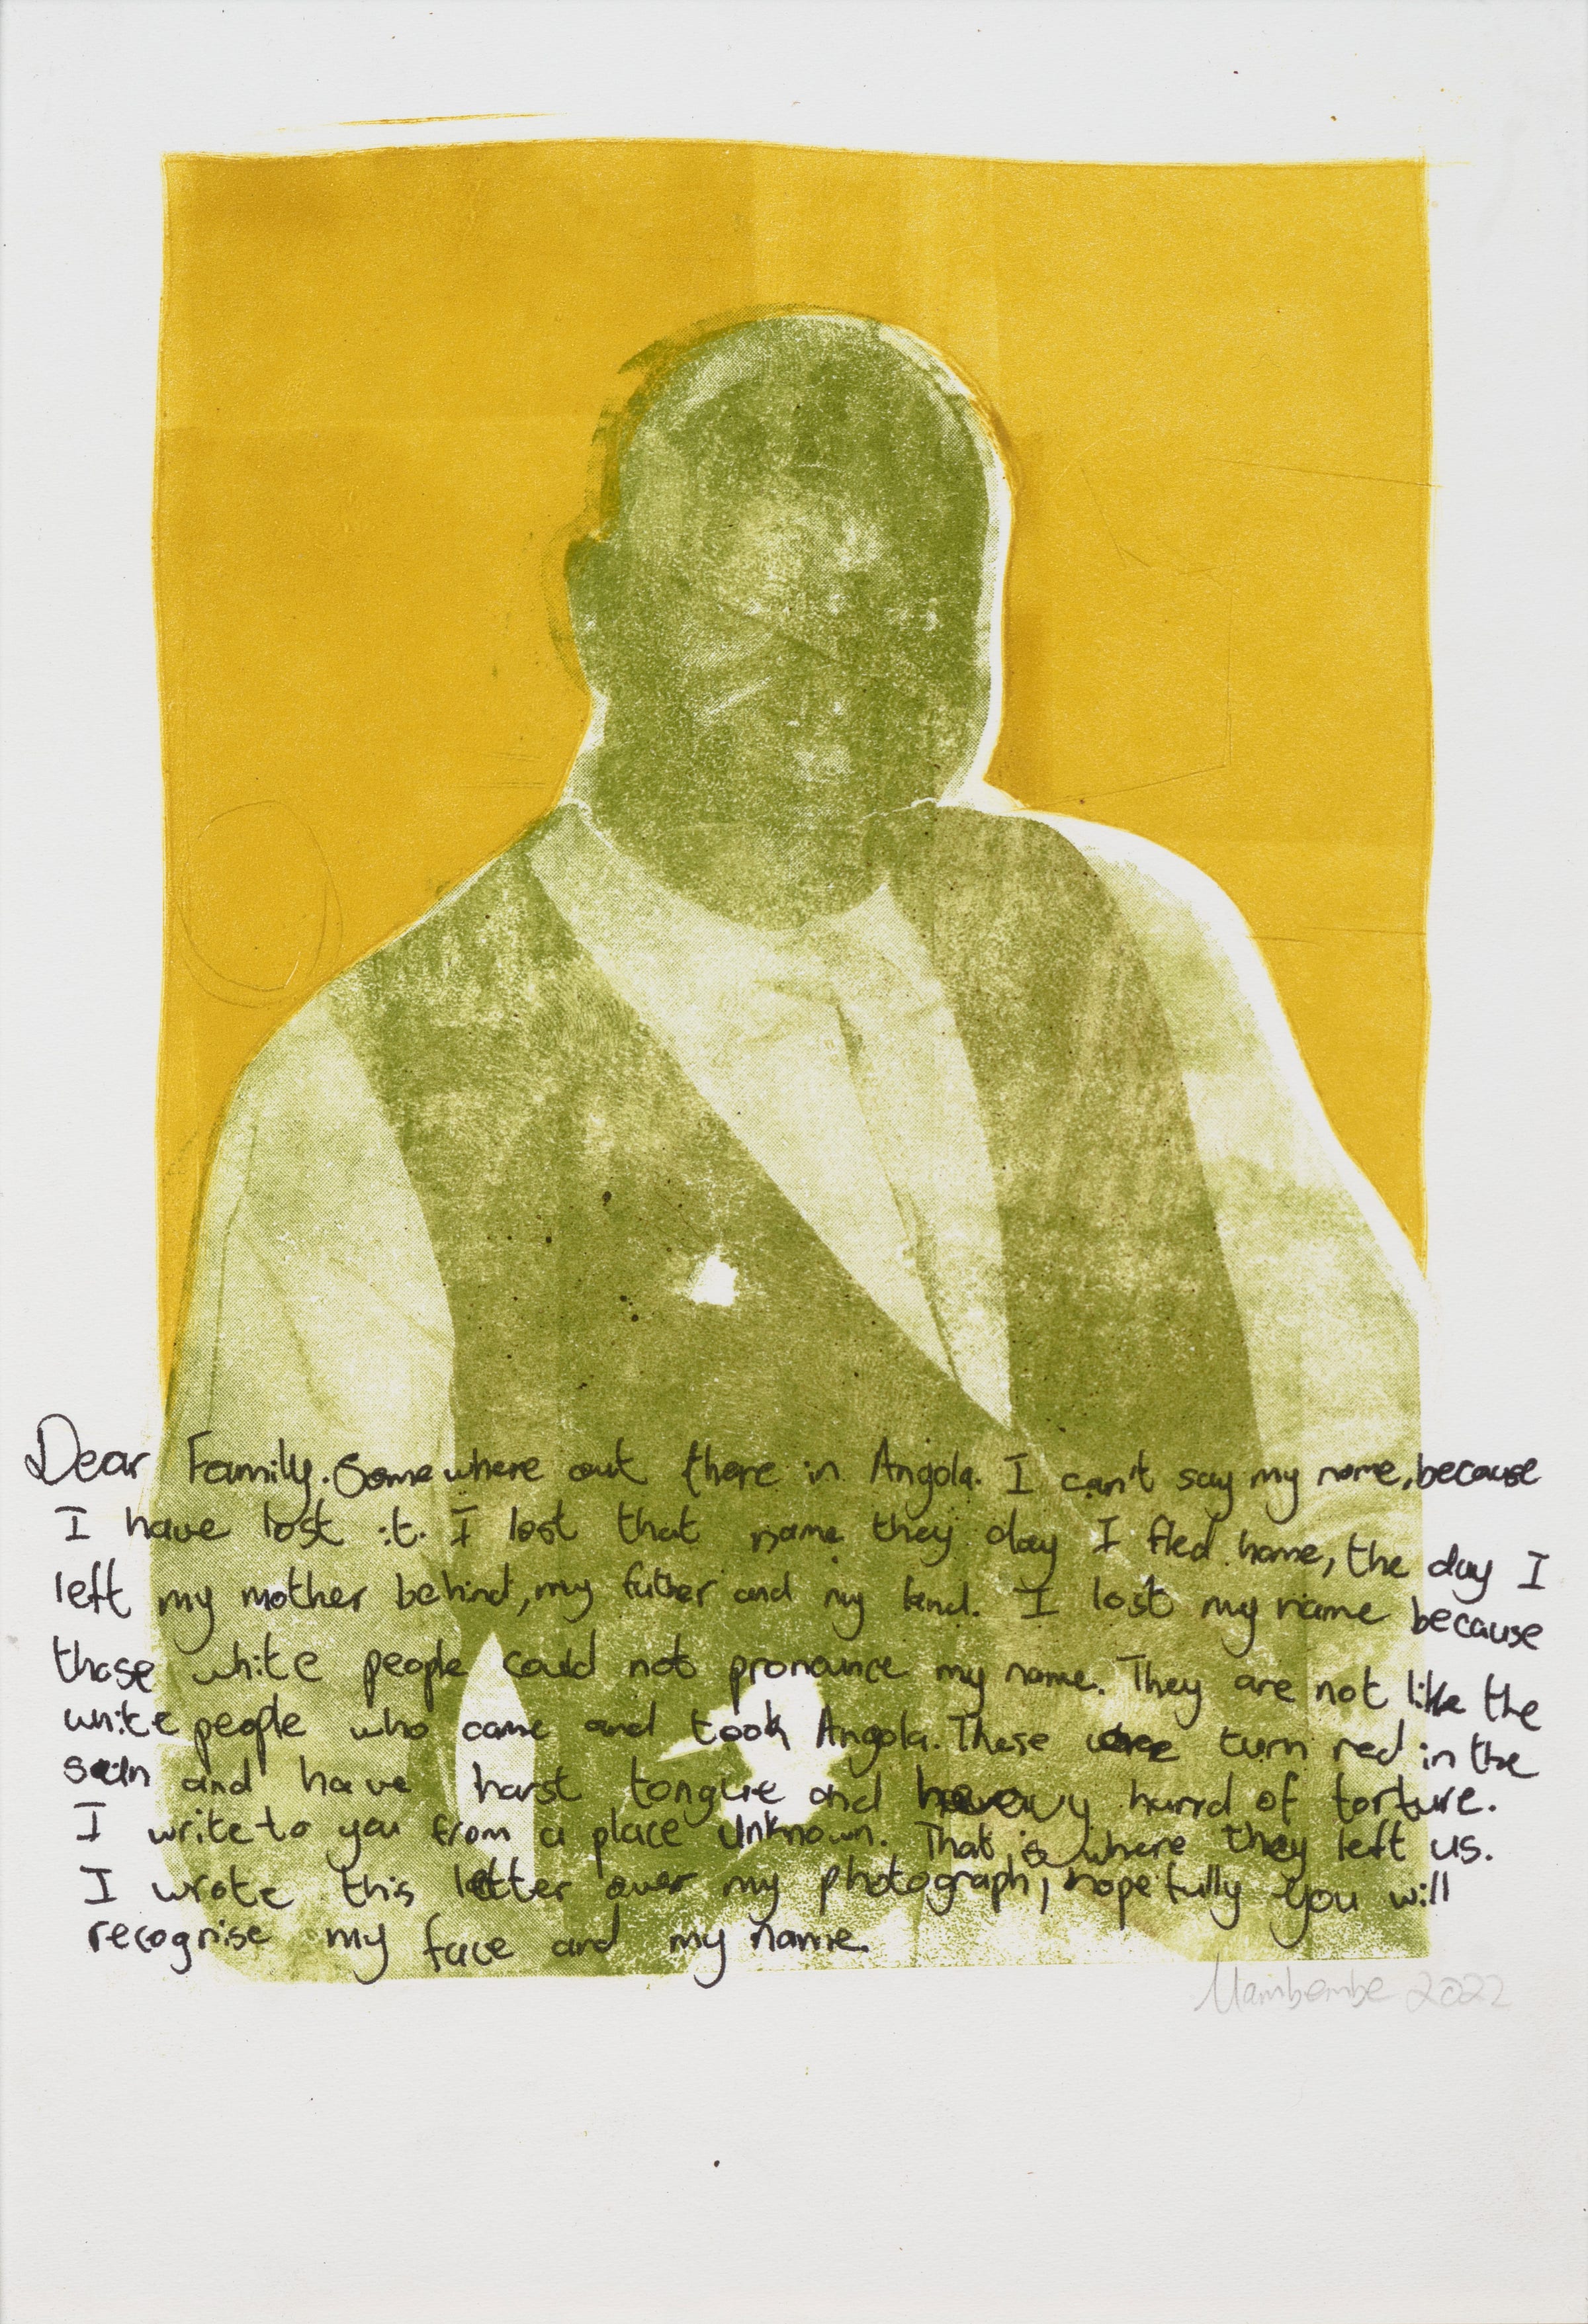 Dear Family. Somewhere out there in Angola. I can't say my name, because
I have lost it. I lost that name they day I fled home, the day I
left my mother behind, my father and my kind. I lost my name because
those white people could not pronounce my name. They are not like the
white people who came and took Angola. These turn red in the
sun and have harst tongue and heavy hand of torture.
I write to you from a place unknown. That is where they left us.
I wrote this letter over my photograph, hopefully you will
recognise my face and my name.
Mambembe 2022